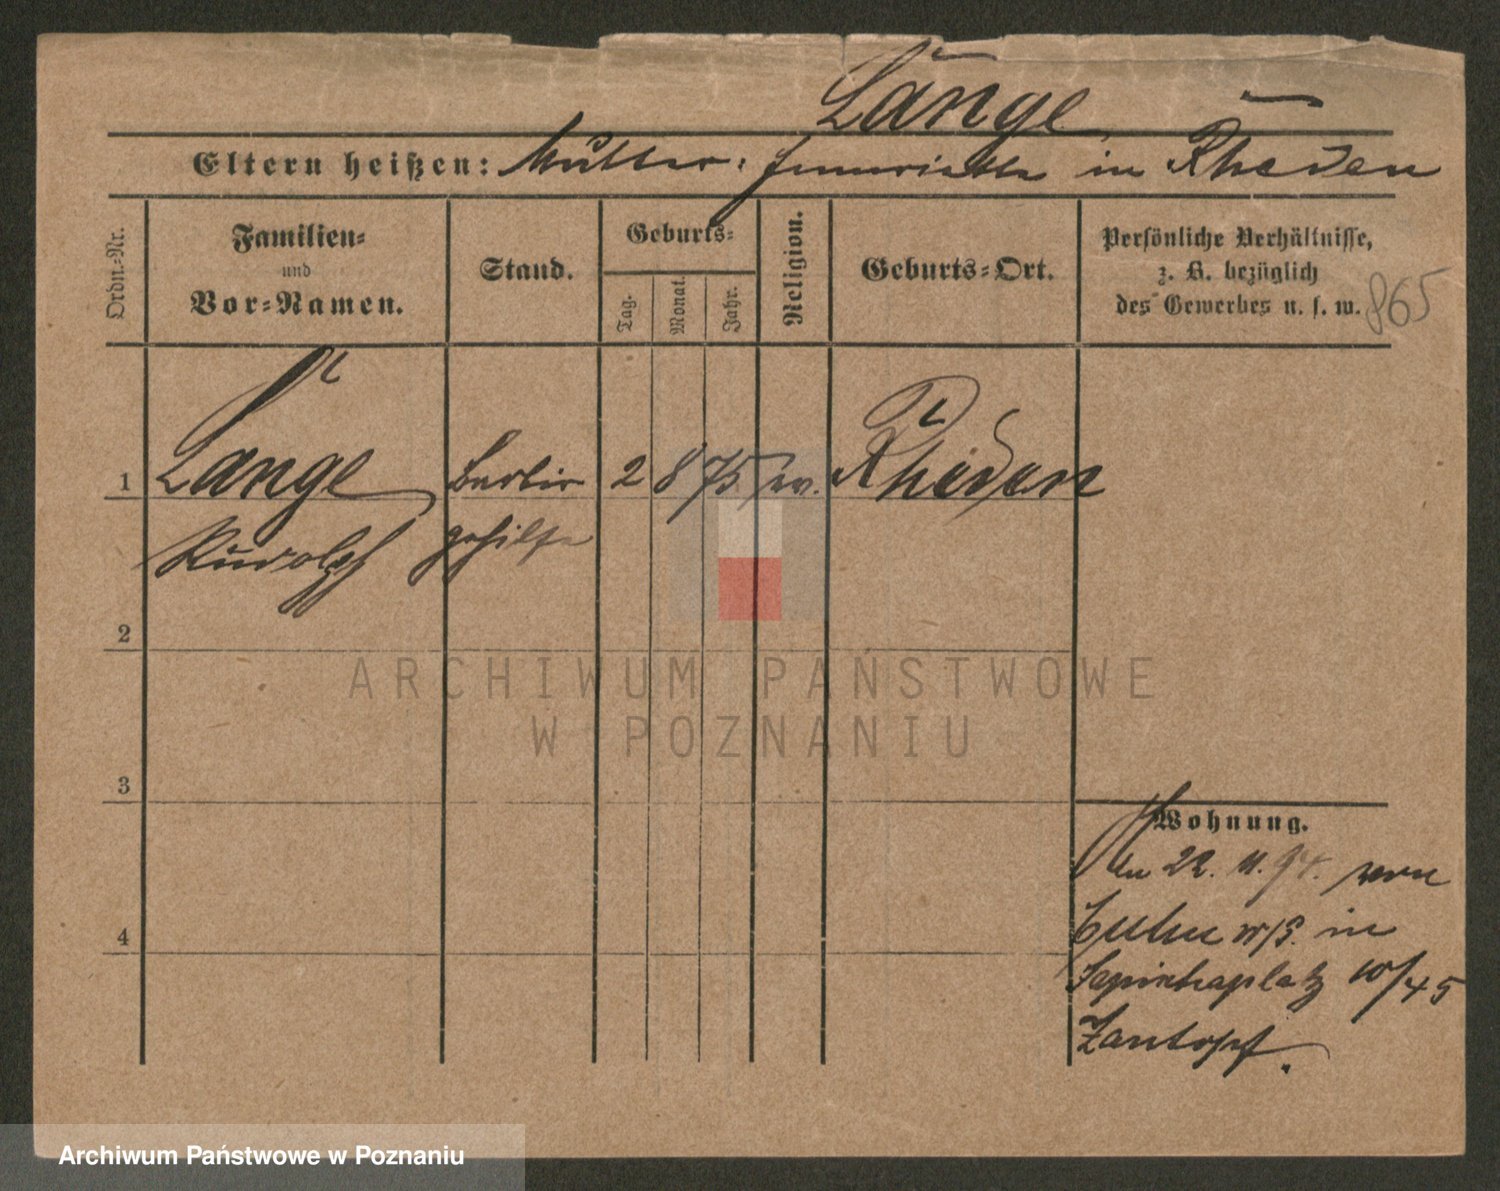 Lange
Eltern heißen: Mutter: Henriette in Rheden
Ordn.-Nr.
Familien-
und
Vor-Namen.
Stand.
Geburts-
Tag.
Monat.
Jahr.
Religion.
Geburts-Ort.
Persönliche Verhältnisse,
z. B. bezüglich
des Gewerbes u. s. w.
865
1 Lange Barbier 2 8 75 ev. Rheden
Rudolph gehilfe
2
3
4
Wohnung.
22. 11. 94. von
W/S. in
Sapiehaplatz 10/45
ARCHIWUM PAŃSTWOWE
W POZNANIU
Archiwum Państwowe w Poznaniu